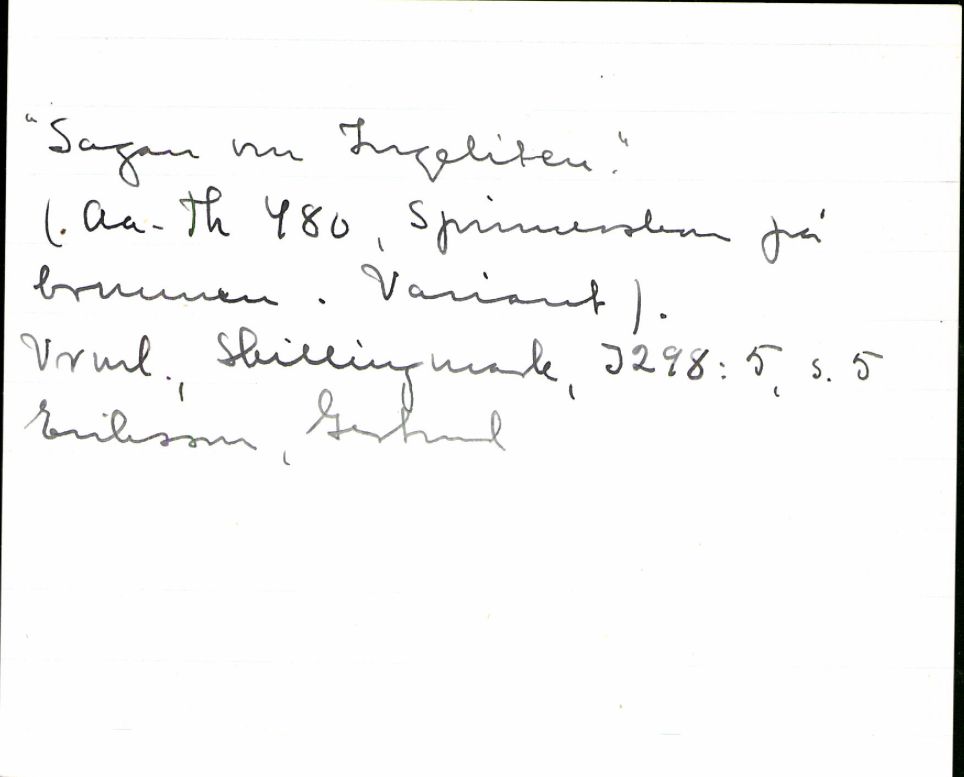 "Sagan om Ingeliten."
(. Aa-Th 480, Spinnerskan på
brunnen. Variant).
Vrml., Skillingmark, J298:5, s. 5
Eriksson, Gertrud